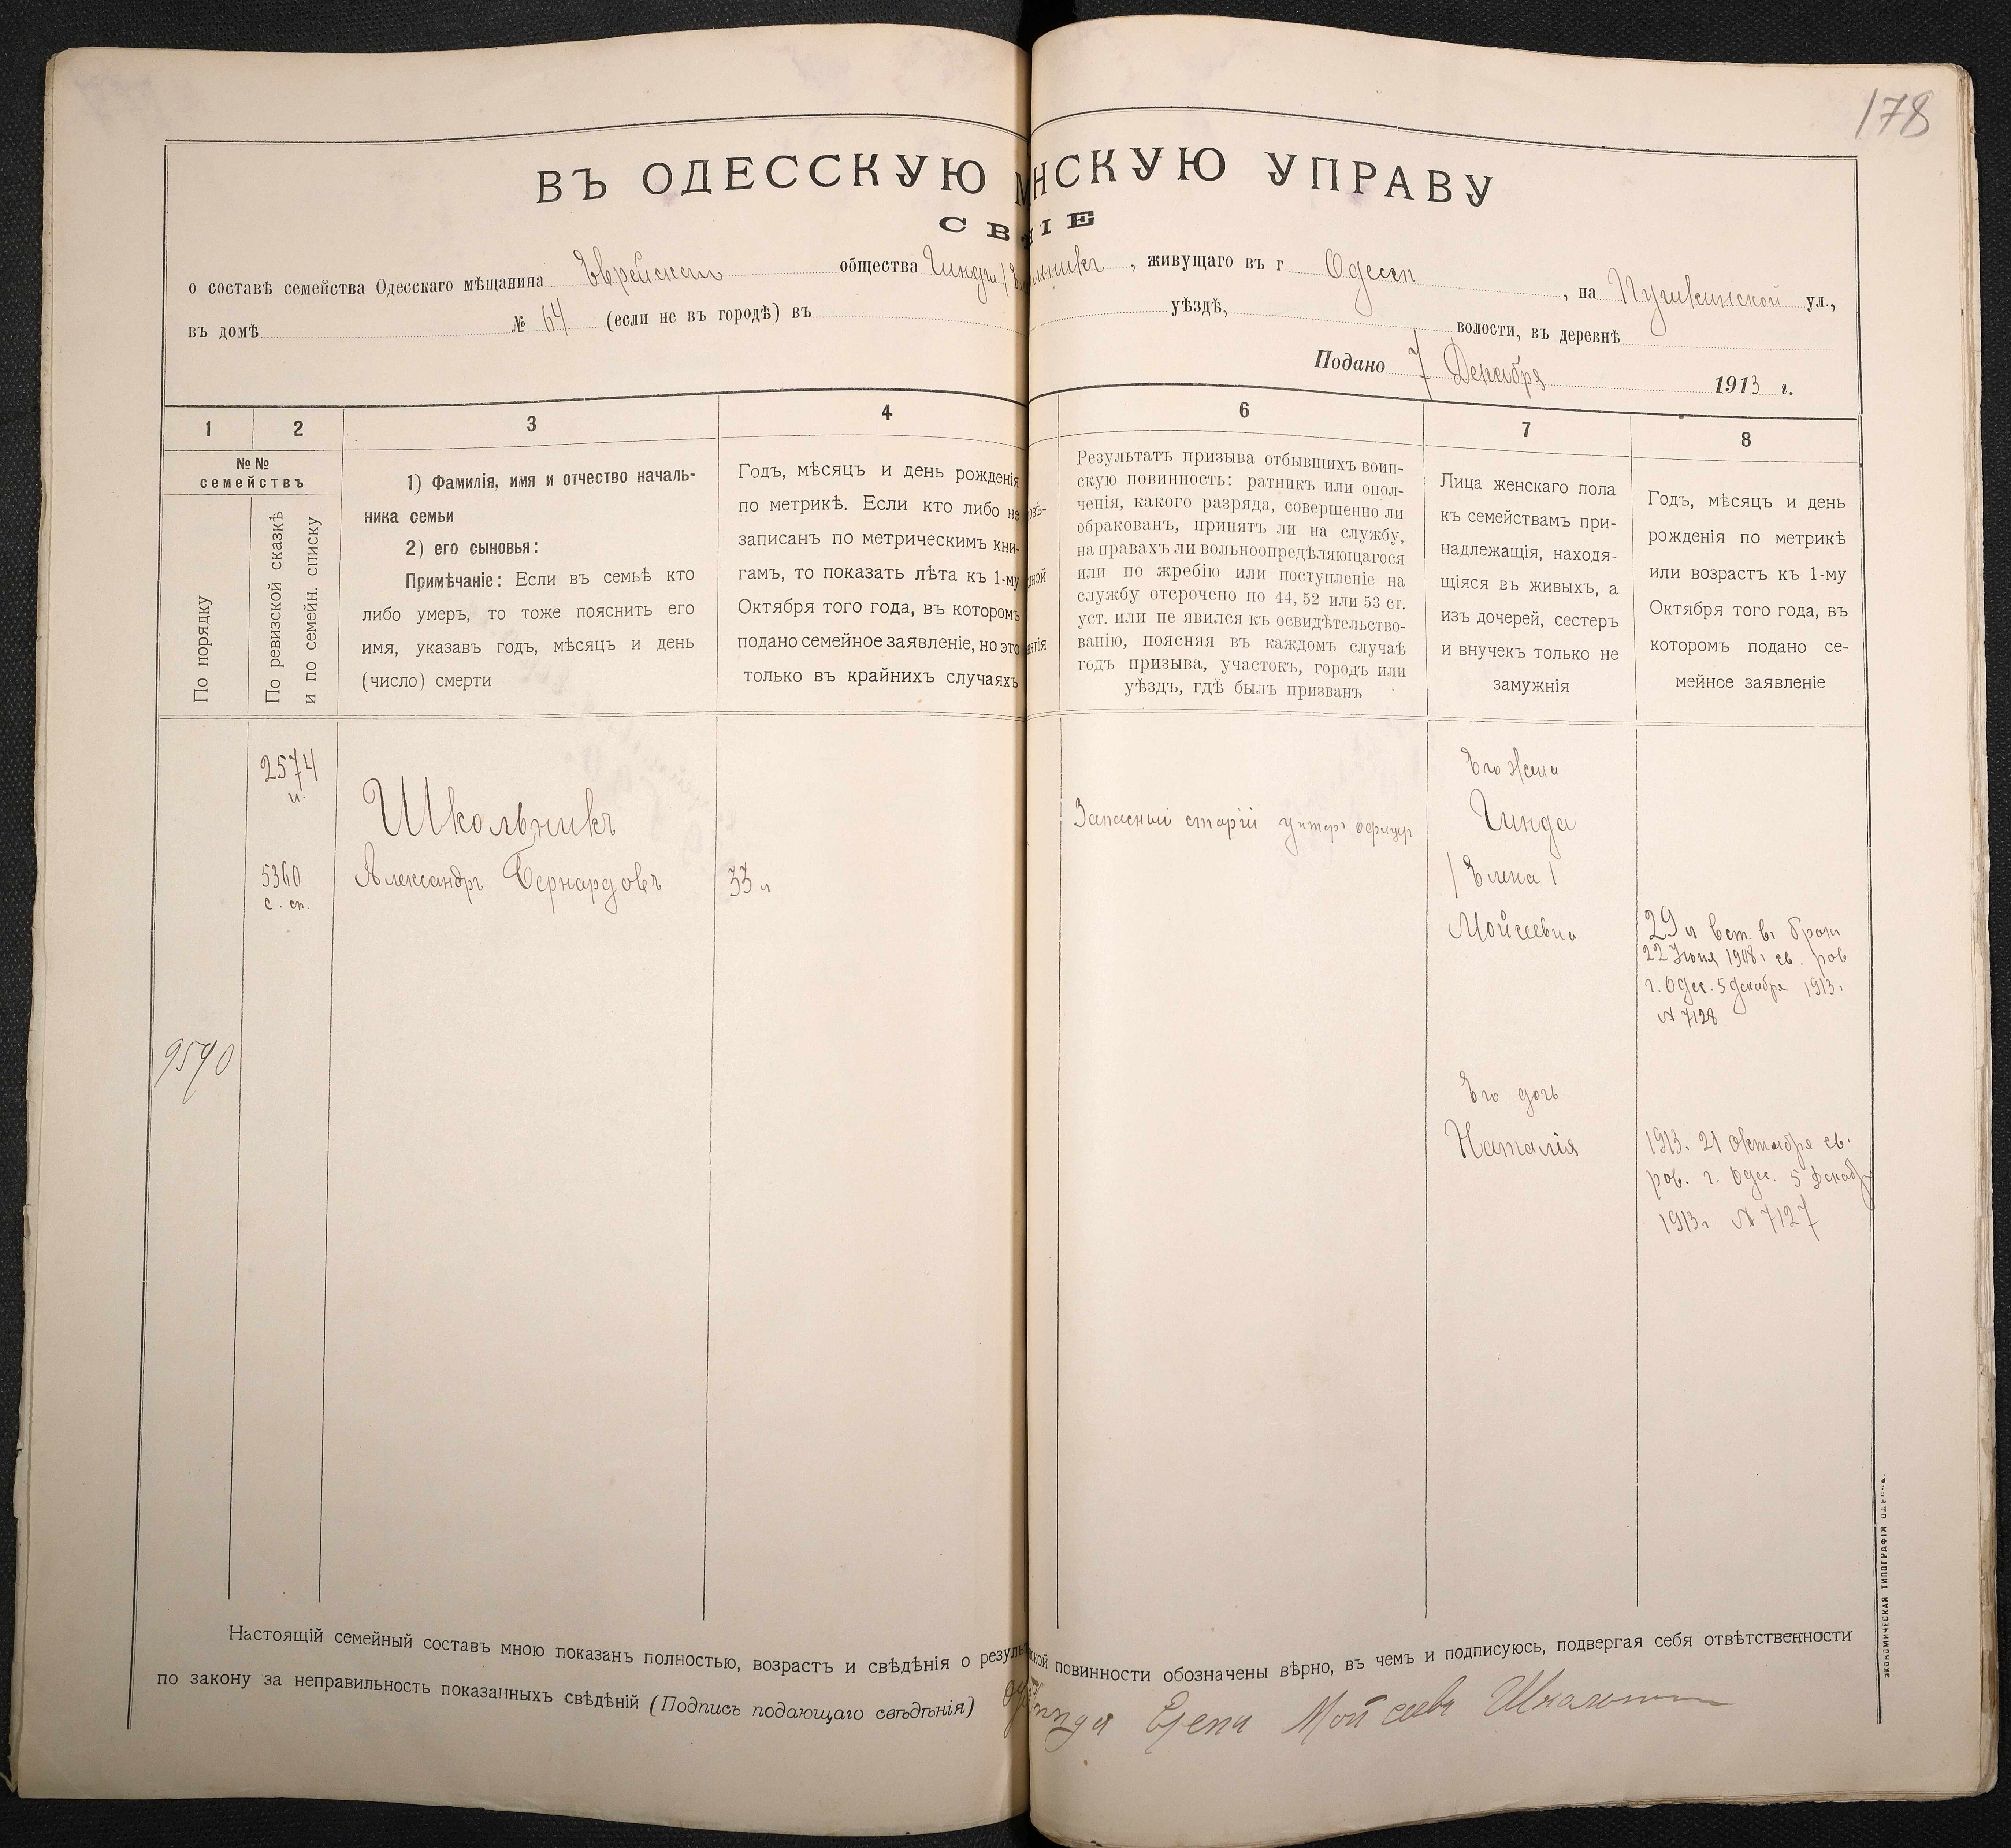 178
ВЪ ОДЕССКУЮ М НСКУЮ УПРАВУ
СВ НІЕ
о составѣ семейства Одесскаго мѣщанина Еврейскаго общества Гинды льникъ, живущаго въ г Одессѣ, на Пушкинской ул.,
въ домѣ № 64 (если не въ городѣ) въ уѣздѣ, волости, въ деревнѣ
Подано 7 Декабря 1913 г.
1 2 3 4 6 7 8
№№ семействъ
По порядку
По ревизской сказкѣ
и по семейн. списку
1) Фамилія, имя и отчество началь-
ника семьи
2) его сыновья:
Примѣчаніе: Если въ семьѣ кто
либо умеръ, то тоже пояснить его
имя, указавъ годъ, мѣсяцъ и день
(число) смерти
Годъ, мѣсяцъ и день рожденія
по метрикѣ. Если кто либо не
записанъ по метрическимъ кни-
гамъ, то показать лѣта къ 1-му
Октября того года, въ которомъ
подано семейное заявленіе, но это
только въ крайнихъ случаяхъ
овѣ-
ной
ятія
Результатъ призыва отбывшихъ воин-
скую повинность: ратникъ или опол-
ченія, какого разряда, совершенно ли
обракованъ, принятъ ли на службу,
на правахъ ли вольноопредѣляющагося
или по жребію или поступленіе на
службу отсрочено по 44, 52 или 53 ст.
уст. или не явился къ освидѣтельство-
ванію, поясняя въ каждомъ случаѣ
годъ призыва, участокъ, городъ или
уѣздъ, гдѣ былъ призванъ
Лица женскаго пола
къ семействамъ при-
надлежащія, находя-
щіяся въ живыхъ, а
изъ дочерей, сестеръ
и внучекъ только не
замужнія
Годъ, мѣсяцъ и день
рожденія по метрикѣ
или возрастъ къ 1-му
Октября того года, въ
которомъ подано се-
мейное заявленіе
9590
2574
и.
5360
с. сп.
Школьникъ
Александръ Бернардовъ
33 л
Запасный старій унтеръ офицеръ
Его жена
Гинда
/Елена/
Мойсеевна
29 л вст. въ бракъ
22 Іюня 1908 г св. рав
г. Одес. 5 декабря 1913 г
№ 7128
Его дочь
Наталія
1913. 21 Октября св.
рав. г. Одес. 5 Декабря
1913 г № 7127
Настоящій семейный составъ мною показанъ полностью, возрастъ и свѣдѣнія о резуль ской повинности обозначены вѣрно, въ чемъ и подписуюсь, подвергая себя отвѣтственности
по закону за неправильность показанныхъ свѣдѣній (Подпись подающаго свѣдѣнія) Гинда Елена Мойсеевна Школьник
ЭКОНОМИЧЕСКАЯ ТИПОГРАФІЯ ОДЕССА.